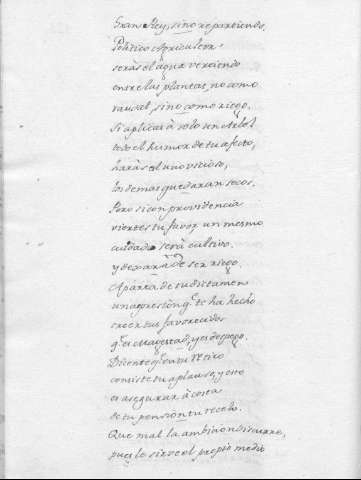 Gran Rey, sino repartiendo,
Politico Agricultor
seràs el agua vertiendo
entre las plantas, no como
raudal, sino como riego,
Si aplicarà solo un Arbol
todo el humor de tu afecto,
haràs el uno vicioso,
los demas quedaran secos.
Pero si con providencia
viertes tu favor, un mesmo
cuidado serà cultivo,
y dexarà de ser riego.
Aparta de tu dictamen
una apresion q̃. te ha hecho
creer tus favorecidos
q̃. es Magestad, y es despego.
Dicente q̃. en tu retiro
consiste tu aplauso, y esto
es asegurar à costa
de tu pension tu recelo.
Que mal la ambicion discurre,
pues le sirve el propio medio